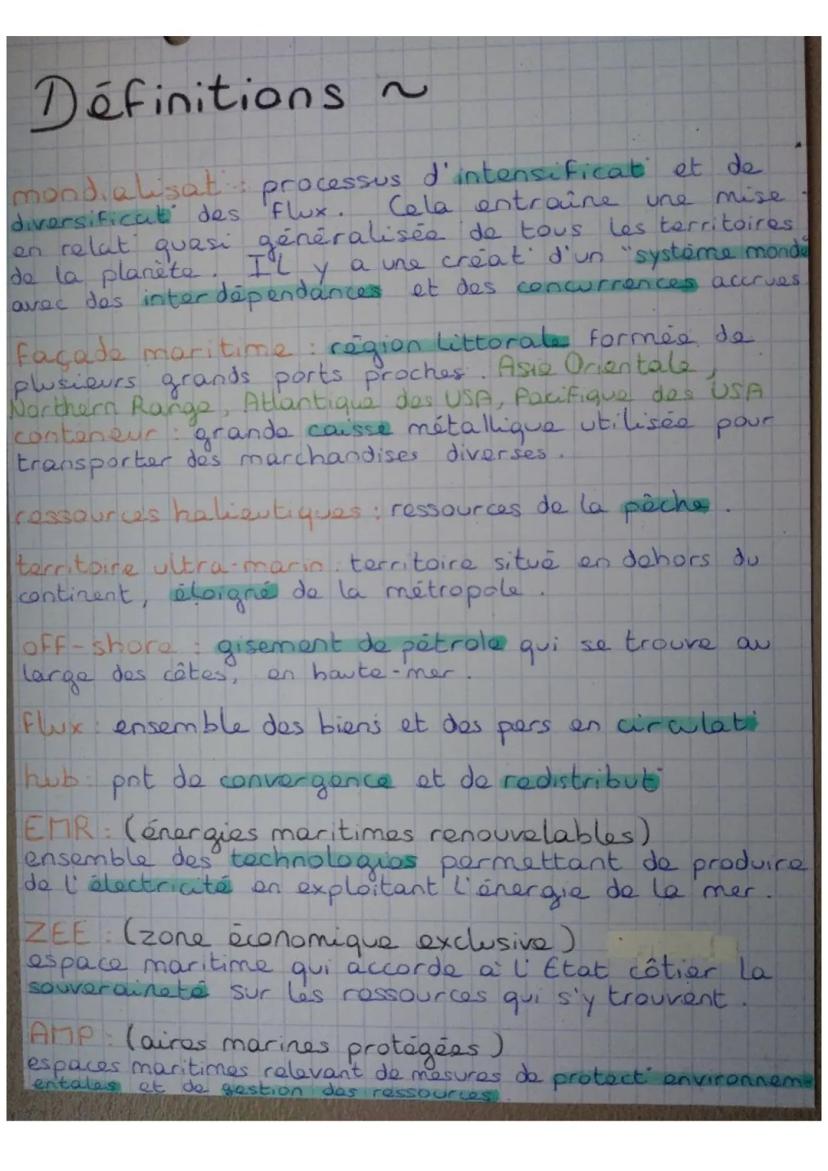 Définitions ~
mondialisat° : processus d'intensificat° et de
diversificat° des flux. Cela entraîne une mise
en relat° quasi généralisée de tous les territoires
de la planète. Il y a une créat° d'un "système monde
avec des interdépendances et des concurrences accrues
façade maritime : région littorale formée de
plusieurs grands ports proches. Asie Orientale,
Northern Range, Atlantique des USA, Pacifique des USA
conteneur : grande caisse métallique utilisée pour
transporter des marchandises diverses.
ressources halieutiques : ressources de la pêche.
territoire ultra-marin : territoire situé en dehors du
continent, éloigné de la métropole.
off-shore : gisement de pétrole qui se trouve au
large des côtes, en haute-mer.
flux : ensemble des biens et des pers en circulati
hub : pnt de convergence et de redistribut°
EMR : (énergies maritimes renouvelables)
ensemble des technologies permettant de produire
de l'électricité en exploitant l'énergie de la mer.
ZEE : (zone économique exclusive)
espace maritime qui accorde à l'Etat côtier la
souveraineté sur les ressources qui s'y trouvent.
AMP : (aires marines protégées)
espaces maritimes relevant de mesures de protect° environnem
entales et de gestion des ressources.